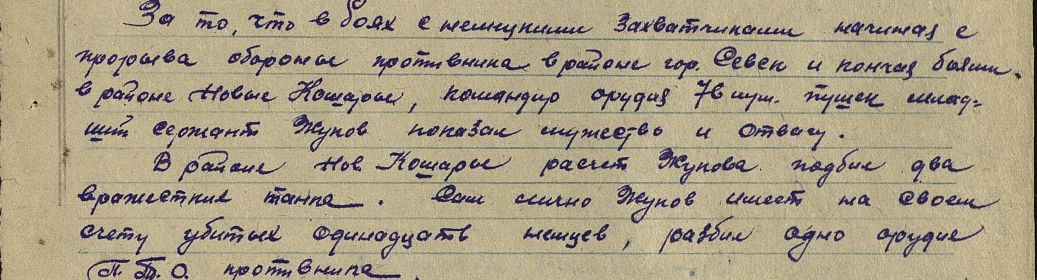 За то, что в боях с немецкими захватчиками начиная с
прорыва обороны противника в районе гор. Севск и кончая боями
в районе Новые Кошары, командир орудия 76 м.м. пушек млад-
ший сержант Жуков показал мужество и отвагу.
В районе Нов Кошары расчет Жукова подбил два
вражеские танка. Сам лично Жуков имеет на своем
счету убитых одинадцать немцев, разбил одно орудие
П.Т.О. противника.